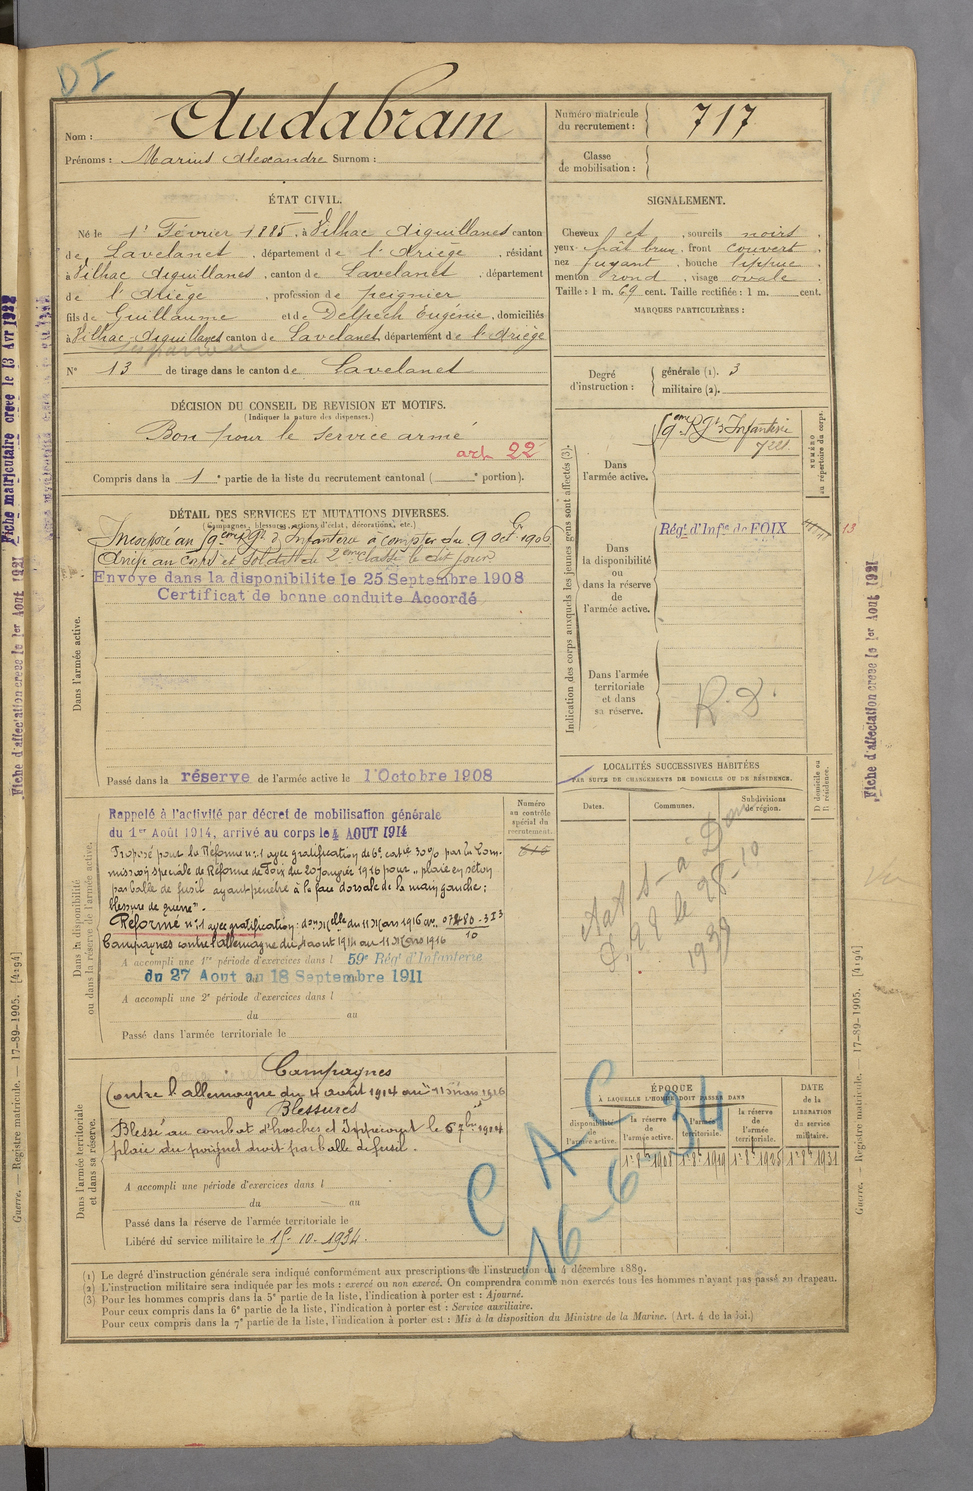 D I
Nom : Audabram
Prénoms : Marius Alexandre Surnom :
Numéro matricule du recrutement : 717
Classe de mobilisation :
ÉTAT CIVIL.
Né le 1r Février 1885, à Vilhac Aiguillanes canton
de Lavelanet, département de l'Ariège, résidant
à Vilhac Aiguillanes, canton de Lavelanet, département
de l'Ariège, profession de peignier
fils de Guillaume et de Delpech Eugénie, domiciliés
à Vilhac Aiguillanes canton de Lavelanet, département de l'Ariège
N° 13 de tirage dans le canton de Lavelanet
SIGNALEMENT.
Cheveux et, sourcils noirs,
yeux chât brun, front couvert,
nez fuyant, bouche lippue,
menton rond, visage ovale.
Taille : 1 m. 69 cent. Taille rectifiée : 1 m. cent.
MARQUES PARTICULIÈRES :
Degré d'instruction : générale (1). 3
militaire (2).
DÉCISION DU CONSEIL DE REVISION ET MOTIFS.
(Indiquer la nature des dispenses.)
Bon pour le service armé
art 22
Compris dans la 1e partie de la liste du recrutement cantonal ( e portion).
DÉTAIL DES SERVICES ET MUTATIONS DIVERSES.
(Campagnes, blessures, actions d'éclat, décorations, etc.)
Dans l'armée active.
Incorporé au 59ème Rgt d'Infanterie à compter du 9 Oct 1906
Arrivé au corps et soldat de 2ème classe le dit jour.
Envoyé dans la disponibilité le 25 Septembre 1908
Certificat de bonne conduite Accordé
Passé dans la réserve de l'armée active le 1 Octobre 1908
Indication des corps auxquels les jeunes gens sont affectés (3).
NUMÉRO au répertoire du corps.
Dans l'armée active.
59ème Rgt d'Infanterie
Dans la disponibilité ou dans la réserve de l'armée active.
Régt d'Infie de FOIX
13
Dans l'armée territoriale et dans sa réserve.
R. D.
LOCALITÉS SUCCESSIVES HABITÉES
PAR SUITE DE CHANGEMENTS DE DOMICILE OU DE RÉSIDENCE.
Dates. Communes. Subdivisions de région.
D domicile ou R résidence.
Numéro au contrôle spécial du recrutement.
Dans la disponibilité ou dans la réserve de l'armée active.
Rappelé à l'activité par décret de mobilisation générale
du 1er Août 1914, arrivé au corps le 4 AOUT 1914
Proposé pour la Réforme n° 1 avec gratification de 6e catie 30% par la Com-
mission spéciale de Réforme de Foix du 20 janvier 1916 pour "plaie en séton
par balle de fusil ayant pénétré à la face dorsale de la main gauche :
blessure de guerre".
Réformé n° 1 avec gratification : don Mlle du 11 Mars 1916
Campagnes contre l'Allemagne du 4 août 1914 au 11 Mars 1916
A accompli une 1re période d'exercices dans l 59e Régt d'Infanterie
du 27 Aout au 18 Septembre 1911
A accompli une 2e période d'exercices dans l
du au
Passé dans l'armée territoriale le
Dans l'armée territoriale et dans sa réserve.
Campagnes
Contre l'allemagne du 4 août 1914 au 11 mars 1916
Blessures
Blessé au combat d'hosches et Ippécourt le 6 7bre 1914
plaie du poignet droit par balle de fusil.
A accompli une période d'exercices dans l
du au
Passé dans la réserve de l'armée territoriale le
Libéré du service militaire le 15-10-1934.
ÉPOQUE
À LAQUELLE L'HOMME DOIT PASSER DANS
disponibilité de l'armée active. la réserve de l'armée active. l'armée territoriale. la réserve de l'armée territoriale.
DATE de la LIBÉRATION du service militaire.
1r 8bre 1908 1r 8bre 1919 1r 8bre 1925 1r 8bre 1931
C A C
16-6-34
(1) Le degré d'instruction générale sera indiqué conformément aux prescriptions de l'instruction du 4 décembre 1889.
(2) L'instruction militaire sera indiquée par les mots : exercé ou non exercé. On comprendra comme non exercés tous les hommes n'ayant pas passé au drapeau.
(3) Pour les hommes compris dans la 5e partie de la liste, l'indication à porter est : Ajourné.
Pour ceux compris dans la 6e partie de la liste, l'indication à porter est : Service auxiliaire.
Pour ceux compris dans la 7e partie de la liste, l'indication à porter est : Mis à la disposition du Ministre de la Marine. (Art. 4 de la loi.)
Fiche matriculaire créée le 13 Avr 1922
Fiche d'affectation créée le 1er Aout 1921
Guerre. — Registre matricule. — 17-89-1905. [4194]
Fiche d'affectation créée le 1er Aout 1921
Guerre. — Registre matricule. 17-89-1905. [4194]